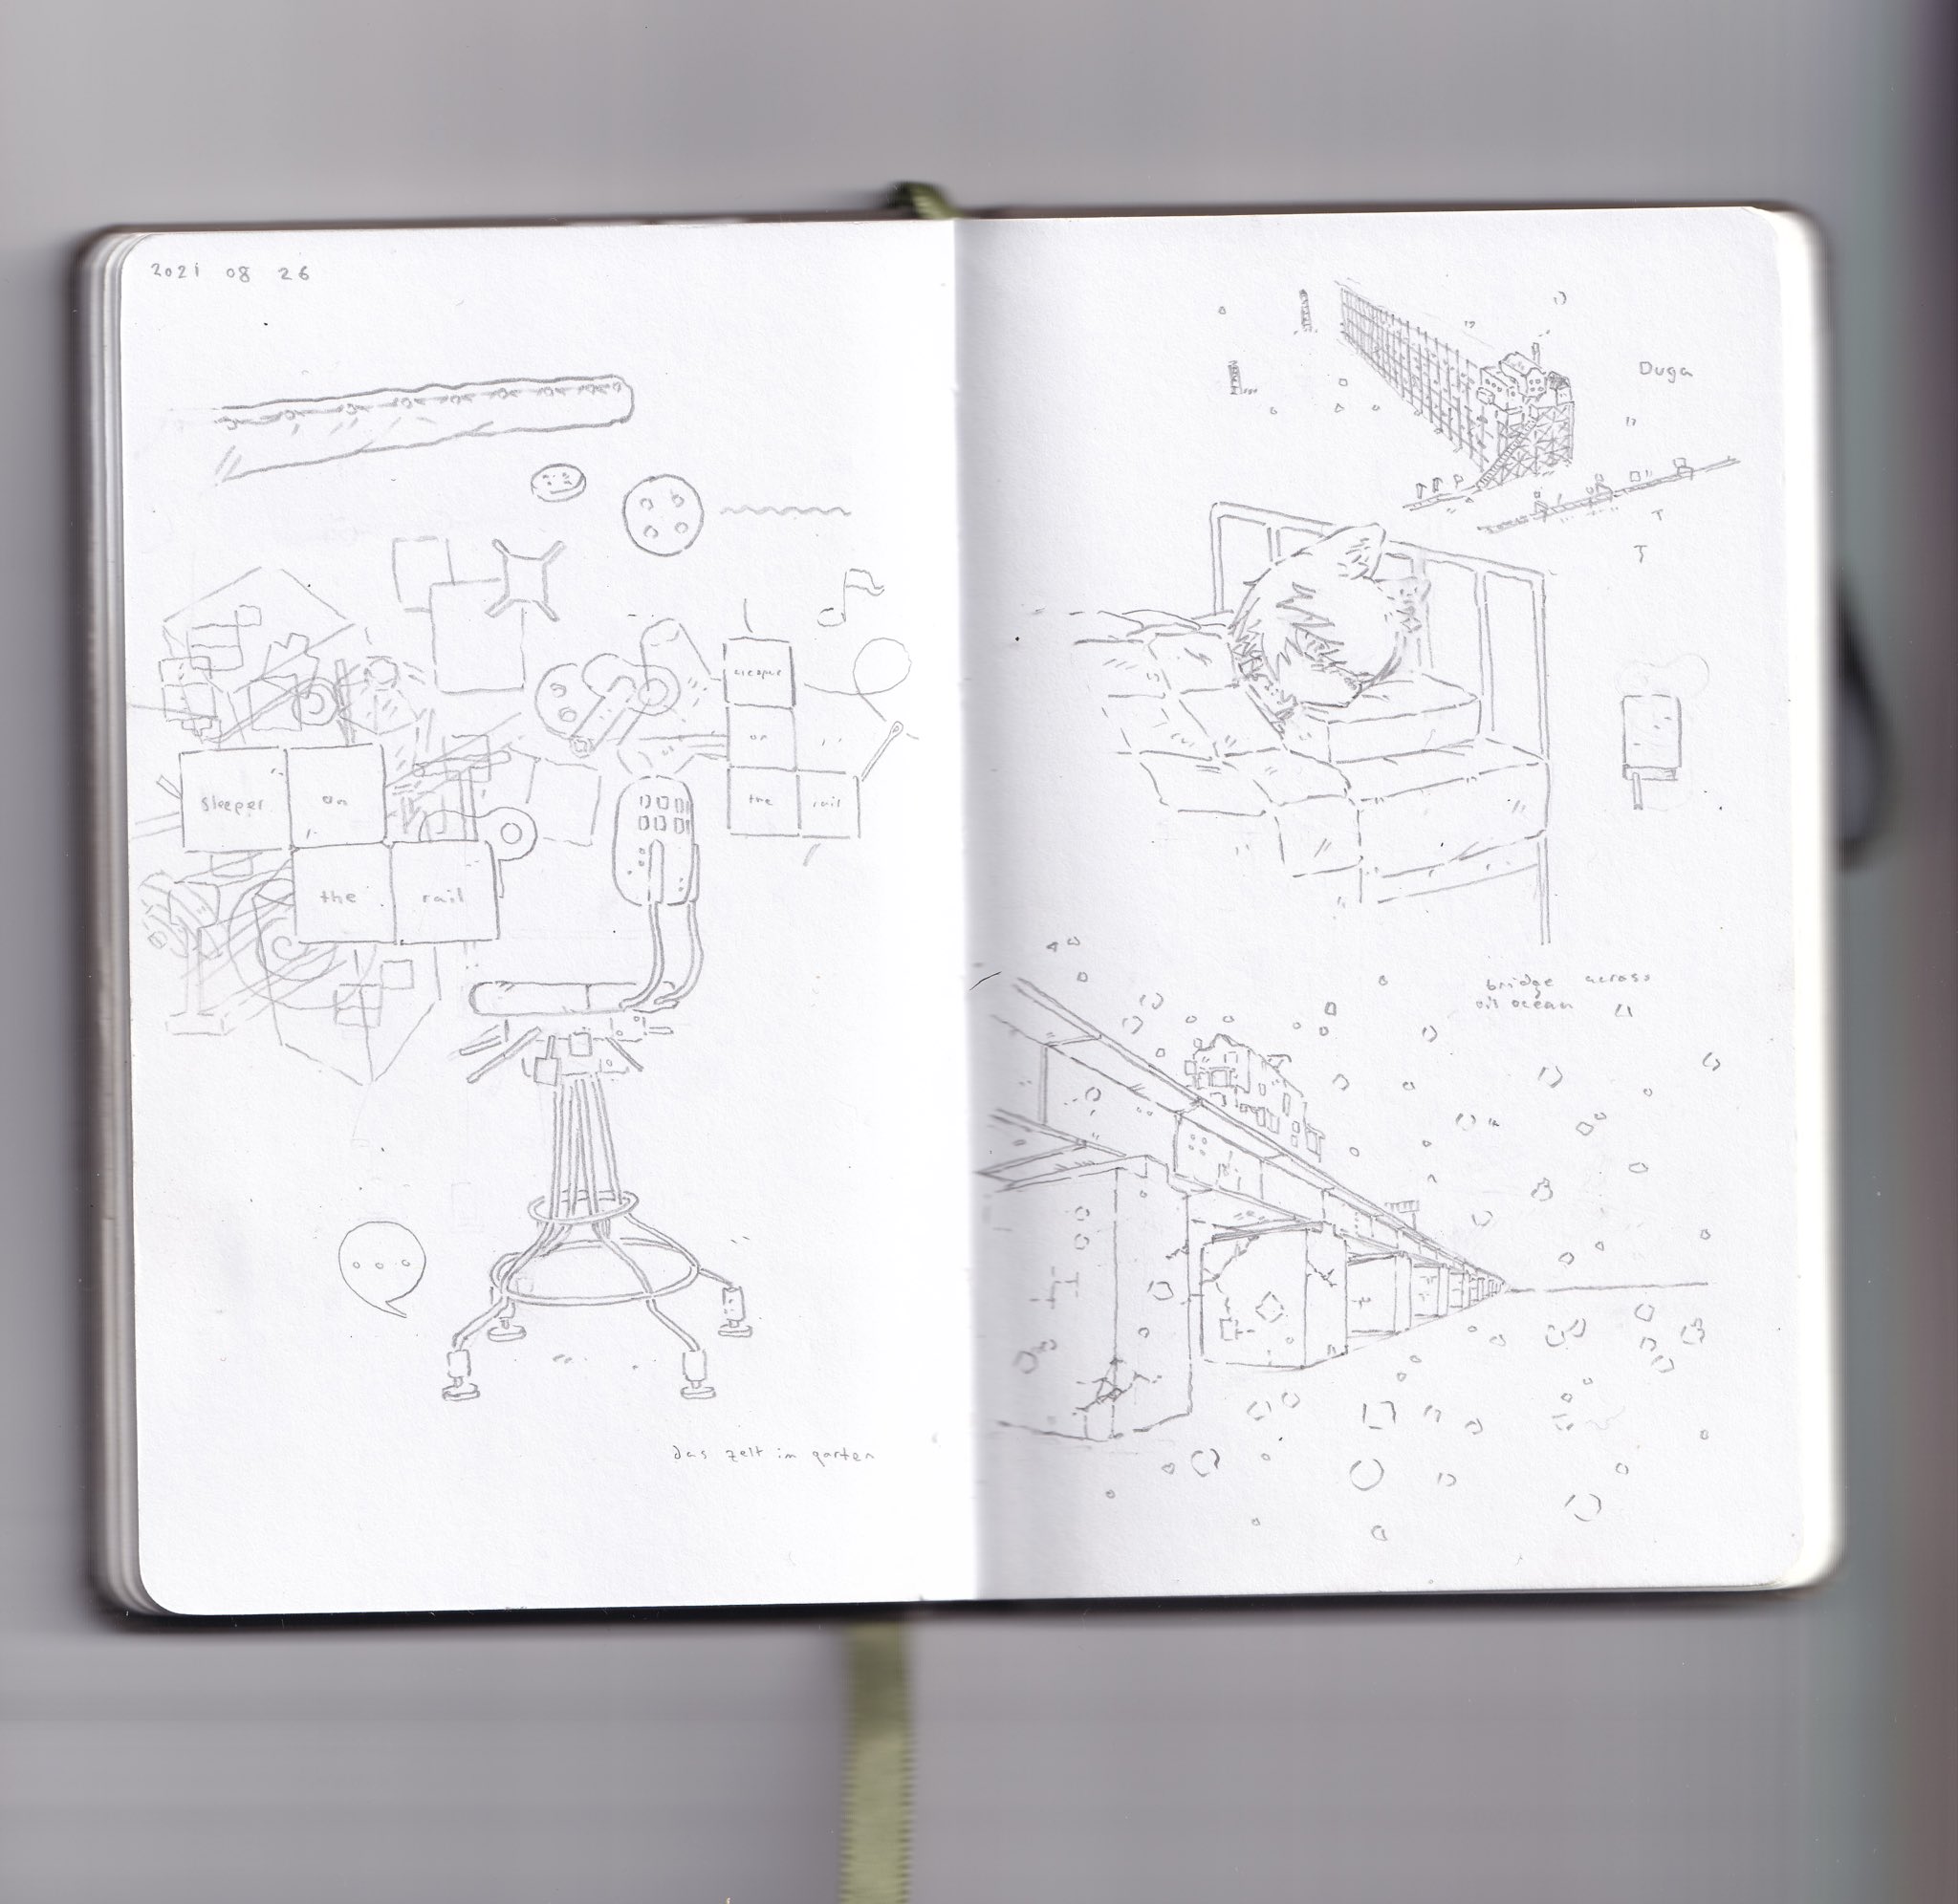 2021 08 26
sleeper on
the rail
sleeper
on
the rail
das zelt im garten
Duga
bridge across
oil ocean